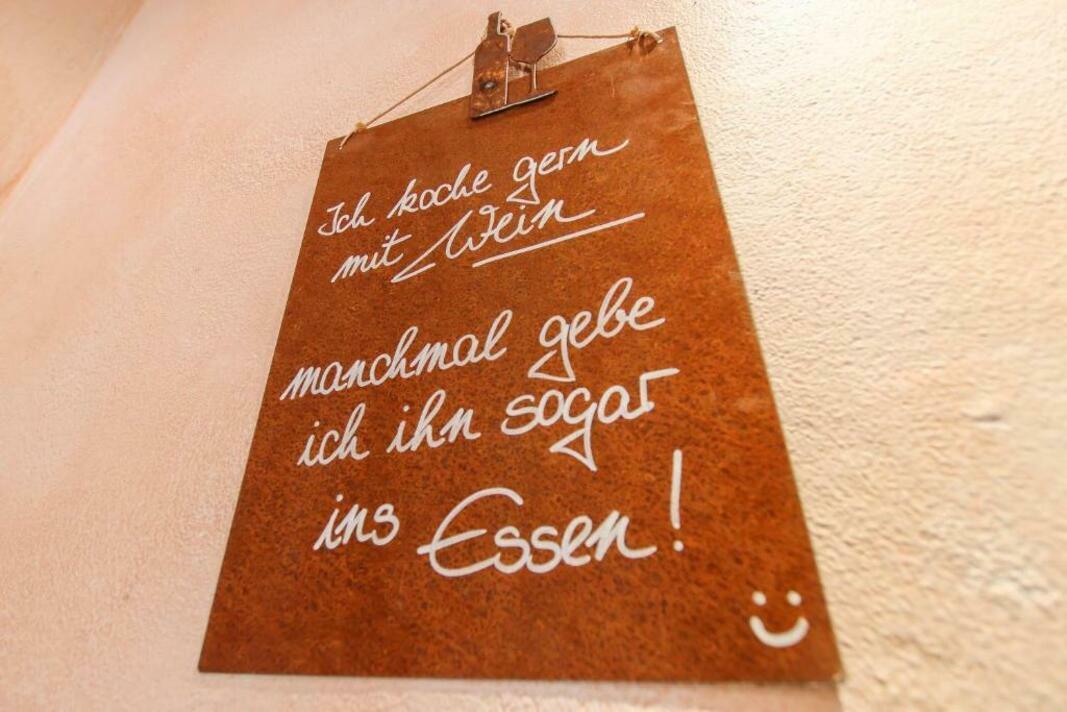 Ich koche gern
mit Wein
manchmal gebe
ich ihn sogar
ins Essen!